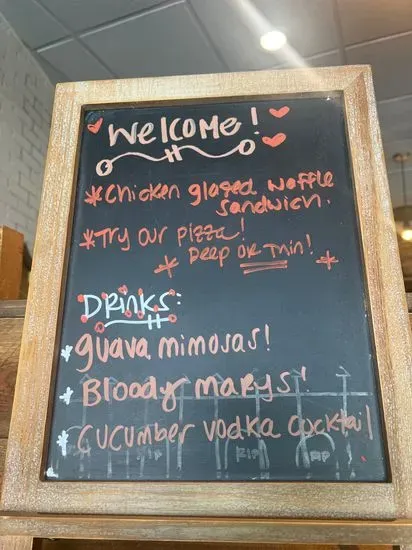 Welcome!
*Chicken glazed waffle
sandwich.
*Try our pizza!
* Deep or thin! *
Drinks:
* guava mimosas!
* Bloody marys!
* cucumber vodka cocktail